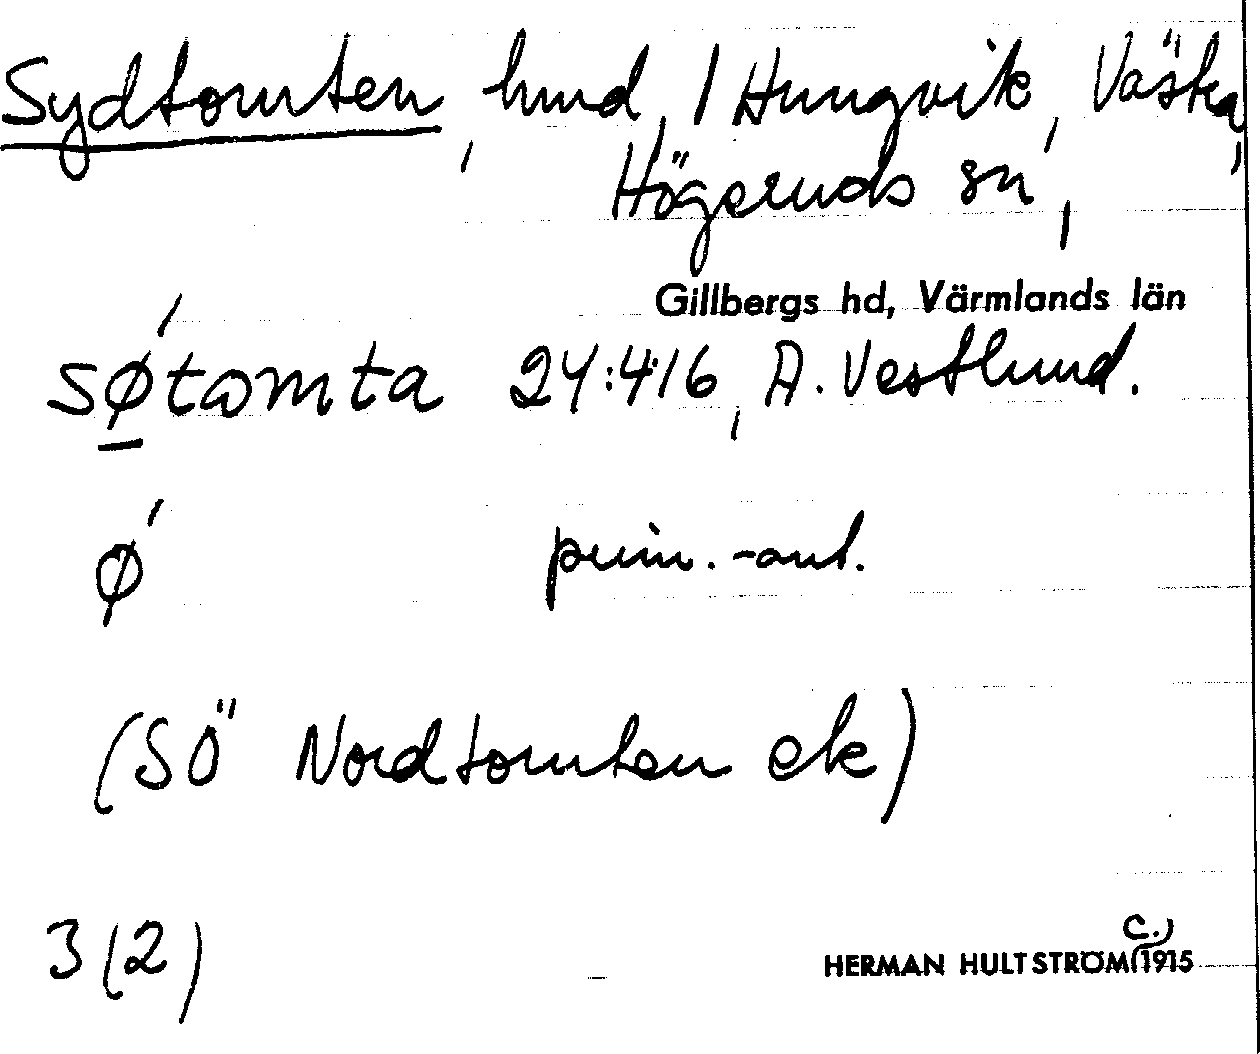 Sydtomten, hmd, / Hungvik, Västra,
Högeruds sn,
Gillbergs hd, Värmlands län
sǿtomta 24:416, A. Vestlund.
ǿ prim.-ant.
(SÖ Nordtomten ek)
3(2)
HERMAN HULTSTRÖM (c.) 1915